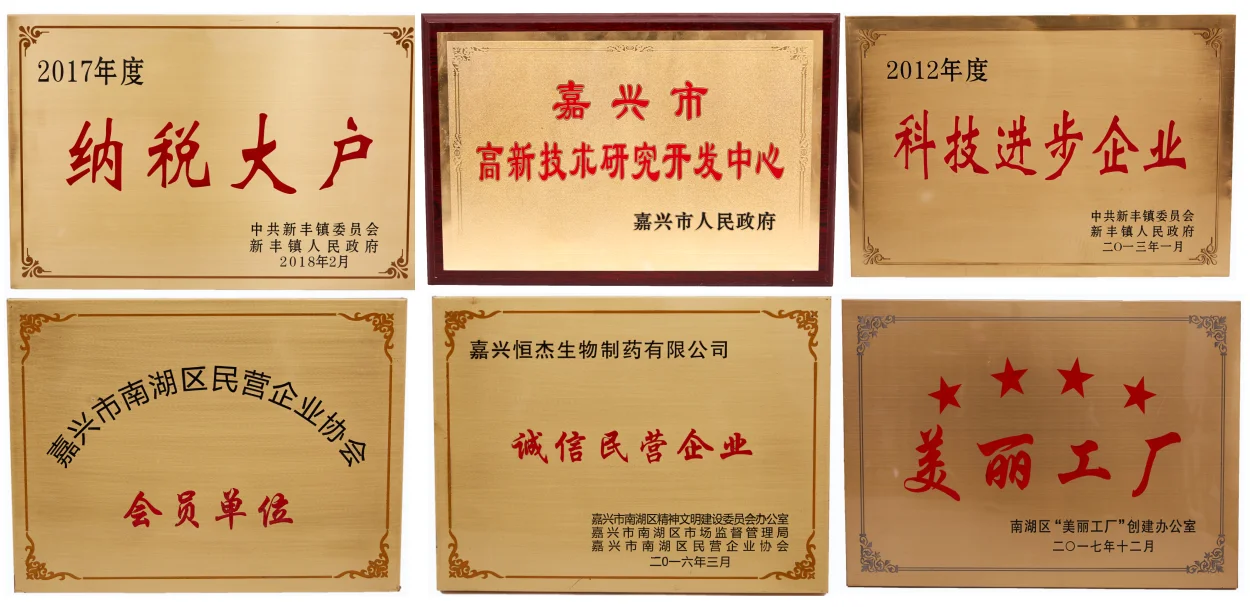 2017年度
纳税大户
中共新丰镇委员会
新丰镇人民政府
2018年2月
嘉兴市
高新技术研究开发中心
嘉兴市人民政府
2012年度
科技进步企业
中共新丰镇委员会
新丰镇人民政府
二〇一三年一月
嘉兴市南湖区民营企业协会
会员单位
嘉兴恒杰生物制药有限公司
诚信民营企业
嘉兴市南湖区精神文明建设委员会办公室
嘉兴市南湖区市场监督管理局
嘉兴市南湖区民营企业协会
二〇一六年三月
美丽工厂
南湖区“美丽工厂”创建办公室
二〇一七年十二月